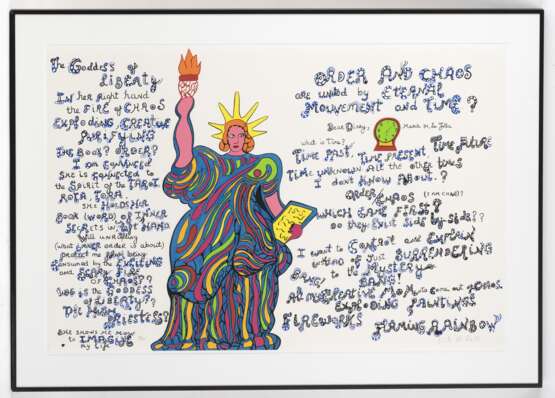 The Goddess of
LIBERTY
IN her Right hand
the FIRE of CHAOS
EXPLODING CREATIVE
PURIFYING
THE BOOK? ORDER?
I am CONFUSED
She is CONNECTED to
the Spirit of the TAROT
ROTA TORA.
SHE HOLDS HER
BOOK (WORD) OF INNER
SECRETS IN LEFT HAND
Still unrolling
(What INNER order is about)
protect me from being
consumed by the EXCITING
and SCARY FIRE
OF CHAOS??
WHO is the GODDESS
of LIBERTY??
THE HIGH
PRIESTESS?
SHE SHOWS ME HOW
to IMAGINE
my life
ORDER AND CHAOS
are united by ETERNAL
MOUVEMENT and TIME?
Dear Diary;
What is Time?
TIME PAST, TIME PRESENT TIME FUTURE
TIME UNKNOWN All the other times
I don't KNOW ABOUT.?
ORDER
CHAOS (I AM CHAOS)?
WHICH CAME FIRST?
Do they EXIST SIDE by SIDE??
I want to CONTROL and EXPLAIN
INSTEAD OF JUST SURRENDERING
to the MYSTERY
BANG! BANG!
All my CREATIVE MOM. to come out of CHAOS.
EXPLODING PAINTINGS
FIREWORKS FLAMING RAINBOW